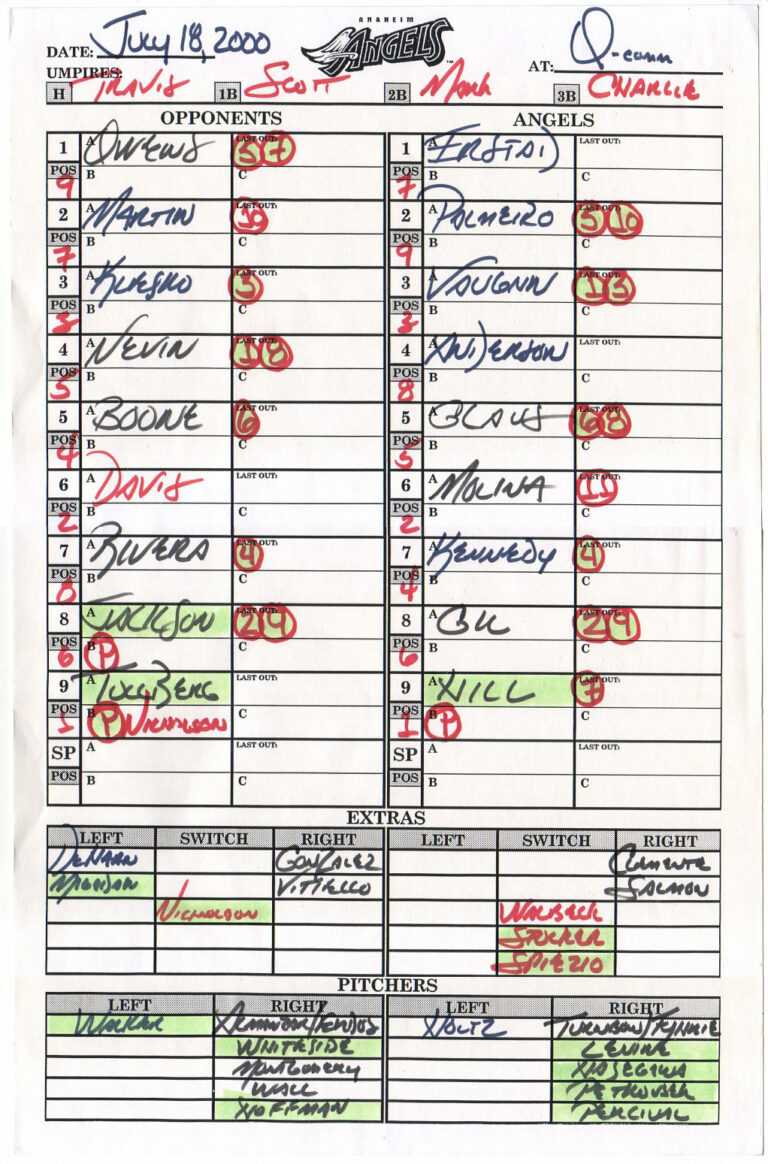 ANAHEIM
ANGELS
DATE: July 18, 2000
AT: Q-comm
UMPIRES:
H TRAVIS 1B SCOTT 2B MARK 3B CHARLIE
OPPONENTS
1 A OWENS LAST OUT: 5 7
POS 9 B C
2 A MARTIN LAST OUT: 10
POS 7 B C
3 A KLESKO LAST OUT: 3
POS 3 B C
4 A NEVIN LAST OUT: 1 8
POS 5 B C
5 A BOONE LAST OUT: 6
POS 4 B C
6 A DAVIS LAST OUT:
POS 2 B C
7 A RIVERA LAST OUT: 4
POS 8 B C
8 A JACKSON LAST OUT: 2 9
POS 6 B P C
9 A TOLLBERG LAST OUT:
POS 1 B P NICHOLSON C
SP A LAST OUT:
POS B C
ANGELS
1 A ERSTAD LAST OUT:
POS 7 B C
2 A PALMEIRO LAST OUT: 5 10
POS 9 B C
3 A VAUGHN LAST OUT: 1 3
POS 3 B C
4 A ANDERSON LAST OUT:
POS 8 B C
5 A GLAUS LAST OUT: 6 8
POS 5 B C
6 A MOLINA LAST OUT: 11
POS 2 B C
7 A KENNEDY LAST OUT: 4
POS 4 B C
8 A GIL LAST OUT: 2 9
POS 6 B C
9 A HILL LAST OUT: 7
POS 1 B P C
SP A LAST OUT:
POS B C
EXTRAS
LEFT SWITCH RIGHT
DEHAAN GONZALEZ
MAGADAN VITIELLO
NICHOLSON
LEFT SWITCH RIGHT
CLEMENTE
SALMON
WALBECK
STOCKER
SPIEZIO
PITCHERS
LEFT RIGHT
WALKER
WHITESIDE
MONTGOMERY
WALL
HOFFMAN
LEFT RIGHT
HOLTZ TURNBOW/
LEVINE
HASEGAWA
PETKOVSEK
PERCIVAL